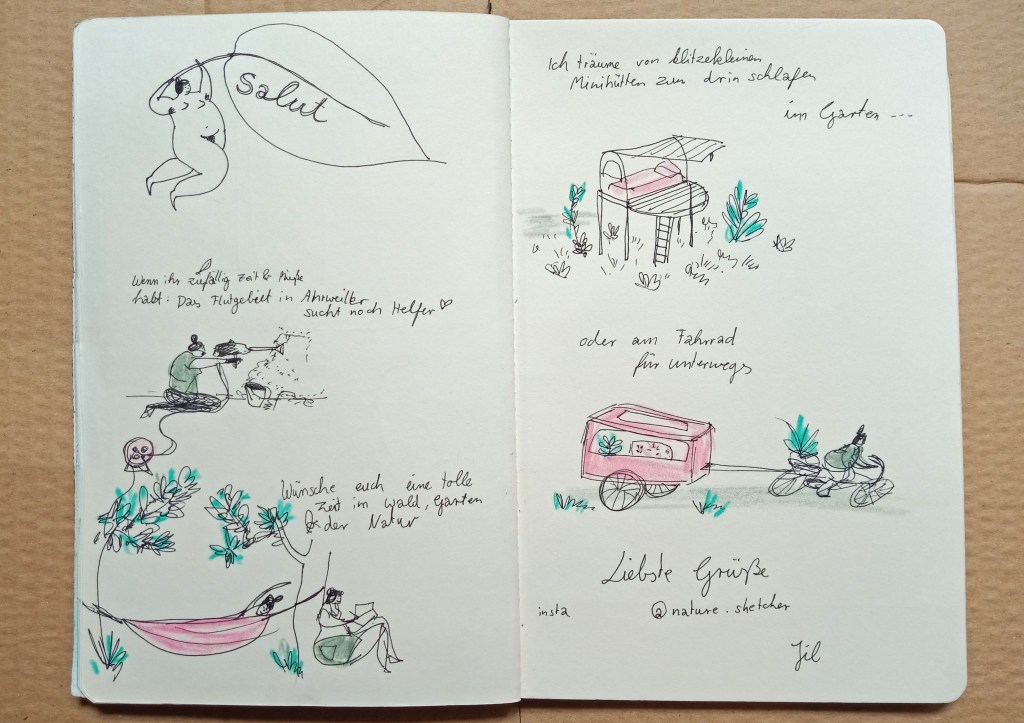 Salut
Wenn ihr zufällig Zeit & Muße
habt: Das Flutgebiet in Ahrweiler
sucht noch Helfer ♡
Wünsche euch eine tolle
Zeit im Wald, Garten
& der Natur
Ich träume von klitzekleinen
Minihütten zum drin schlafen
im Garten ...
oder am Fahrrad
für unterwegs
Liebste Grüße
insta @nature.sketcher
Jil